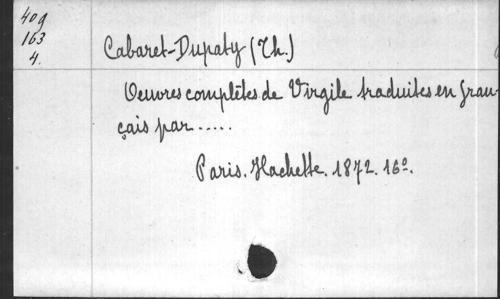 409
163
4.
Cabaret-Dupaty (Th.)
Oeuvres complètes de Virgile traduites en fran-
çais par.....
Paris. Hachette. 1872. 16º.